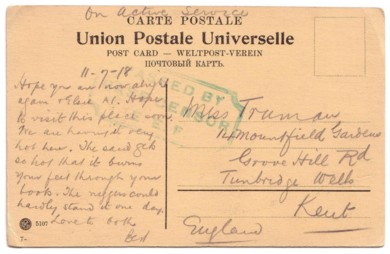 On Active Service
CARTE POSTALE
Union Postale Universelle
POST CARD — WELTPOST-VEREIN
ПОЧТОВЫЙ КАРТЪ.
11-7-18
Hope you are now alright
again & A1. Hope
to visit this place soon
We are having it very
hot here. The sand gets
so hot that it burns
your feet through your
boots. The could
hardly stand it one day
Love to both
PASSED BY
CENSOR
Miss Truman
Mountsfield Gardens
Grove Hill Rd
Tunbridge Wells
Kent
England
5107